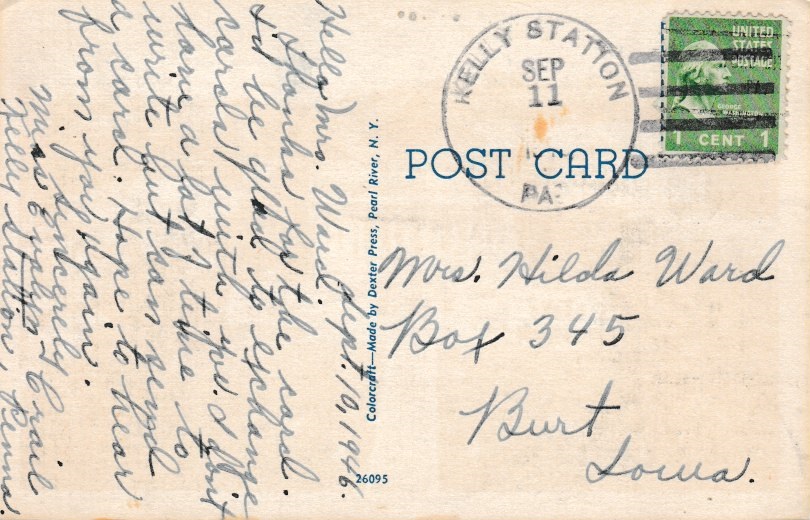 Sept. 10, 1946.
Hello Mrs. Ward,
Thanks for the card.
I'd be glad to exchange
cards with you. I don't
have a lot of time to
write but can send
a card. Hope to hear
from you again.
Sincerely
Miss Evalyn Crail
Kelly Station, Penna.
Colorcraft—Made by Dexter Press, Pearl River, N. Y.
26095
KELLY STATION
SEP
11
PA.
UNITED
STATES
POSTAGE
GEORGE
WASHINGTON
1 CENT 1
POST CARD
Mrs. Hilda Ward
Box 345
Burt
Iowa.